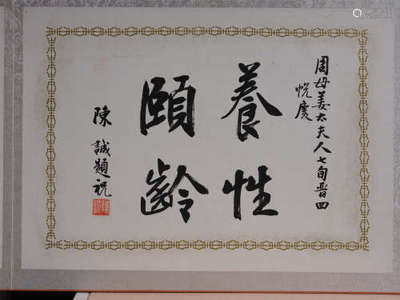 周母姜太夫人七旬晋四
帨慶
養性
頤齡
陳誠題祝